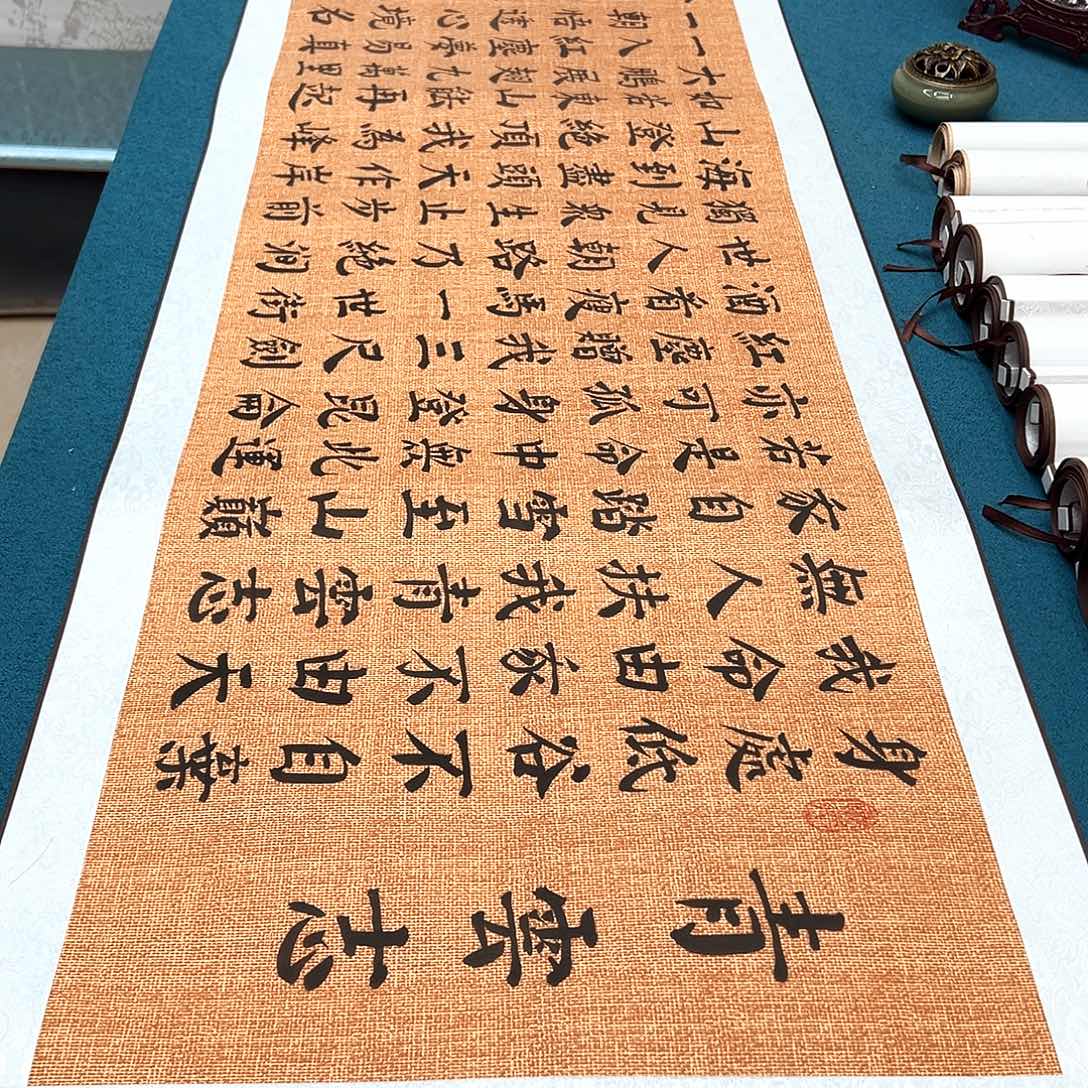 青雲志
身處低谷不自棄
我命由家不由天
無人扶我青雲志
家自踏雪至山巔
若是命中無此運
亦可孤身登昆侖
紅塵贈我三尺劍
酒肴瘦馬一世街
世人朝路万絕澗
獨見眾生止步前
海到盡頭天作岸
山登絕頂我為峰
如若東山能再起
大鵬展翅九萬里
一入紅塵夢易真
一朝悟達心境名